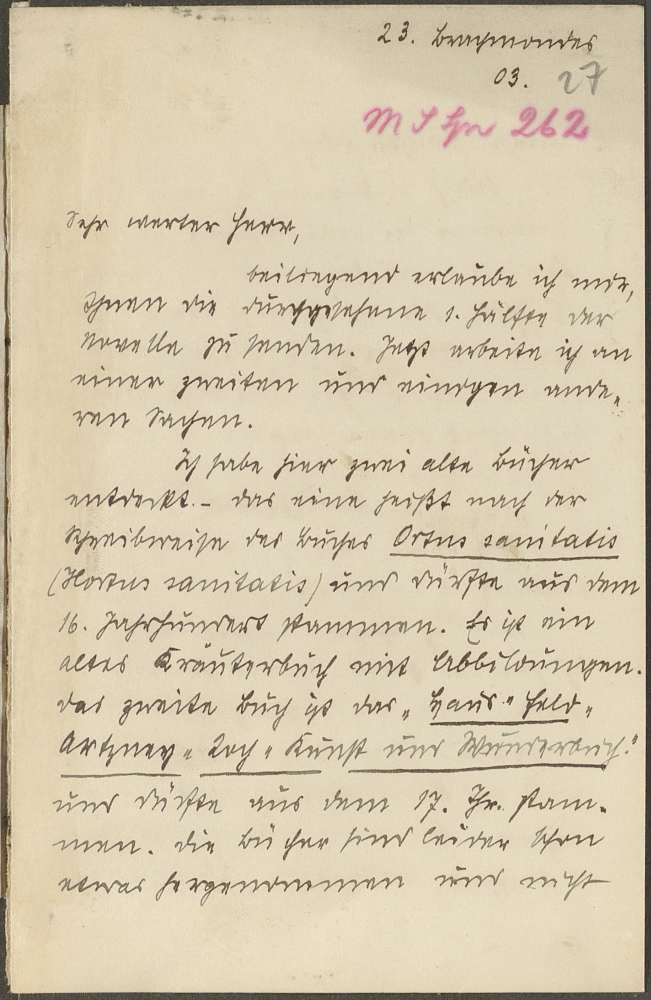 23. Brachmondes
03. 27
262
Sehr werter Herr,
beiliegend erlaube ich mir,
Ihnen die durchgesehene 1. Hälfte der
Novelle zu senden. Jetzt arbeite ich an
einer zweiten und einigen ande„
ren Sachen.
Ich habe hier zwei alte Bücher
entdeckt. – das eine heißt nach der
Schreibweise des Buches Ortus sanitatis
(Hortus sanitatis) und dürfte aus dem
16. Jahrhundert stammen. Es ist ein
altes Kräuterbuch mit Abbildungen.
das zweite Buch ist das „Haus„ Feld„
Artzney„ Koch„ Kunst und Wunderbuch."
und dürfte aus dem 17. Jhr. stam„
men. die Bücher sind leider schon
etwas hergenommen und nicht